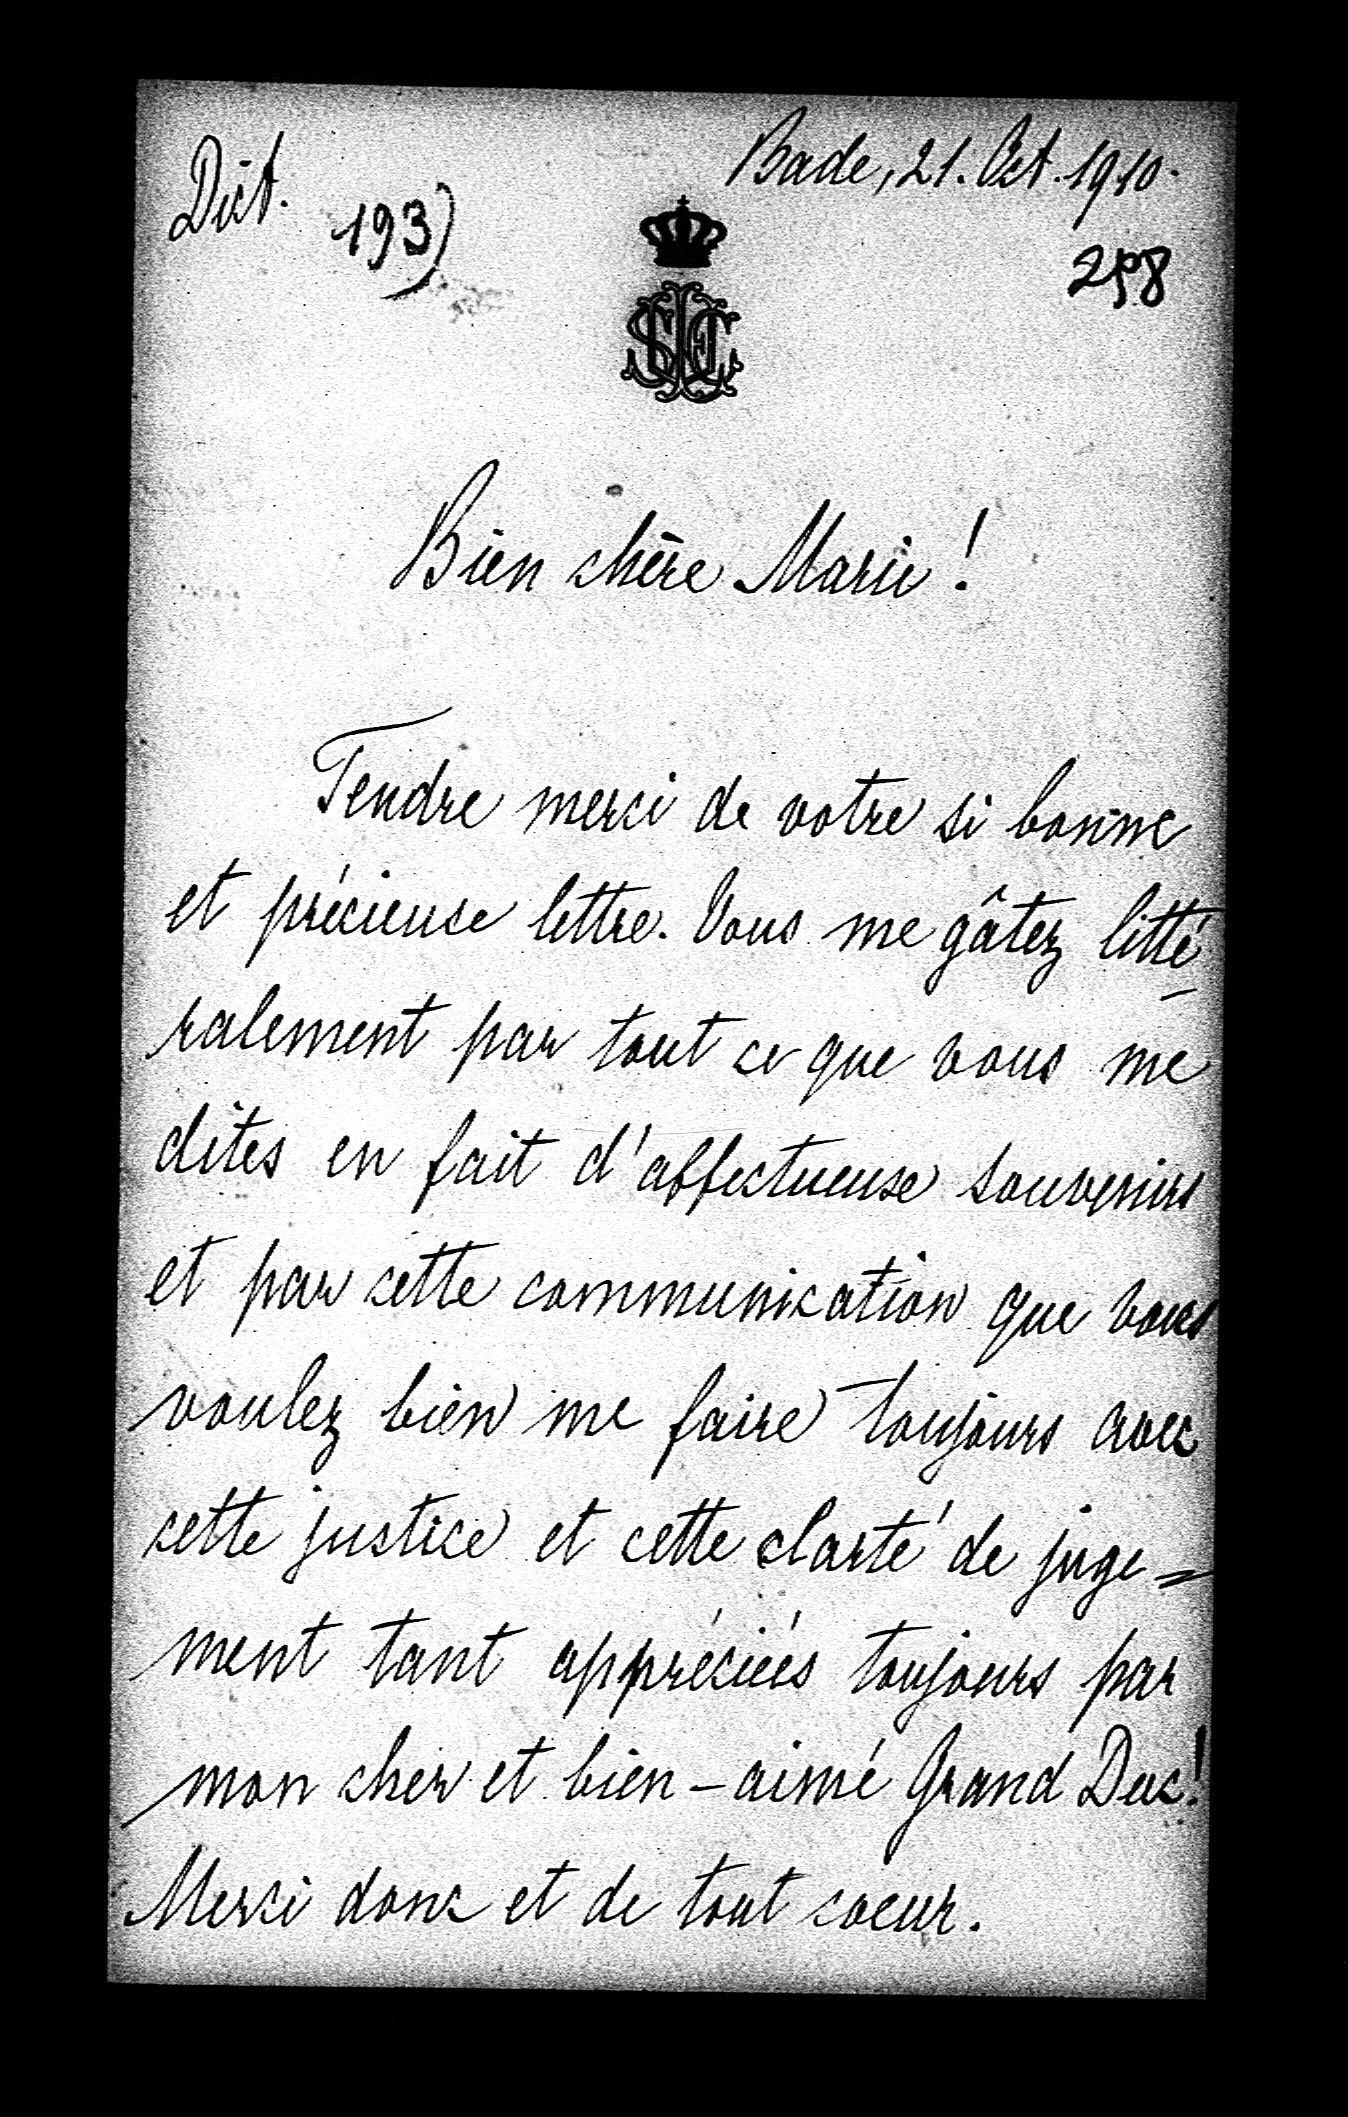 Dict.
Bade, 21. Oct. 1910.
193)
258
Bien chère Marie!
Tendre merci de votre si bonne
et précieuse lettre. Vous me gâtez litté-
ralement par tout ce que vous me
dites en fait d'affectueuse souvenirs
et par cette communication que vous
voulez bien me faire toujours avec
cette justice et cette clarté de juge=
ment tant appréciées toujours par
mon cher et bien-aimé Grand Duc!
Merci donc et de tout coeur.